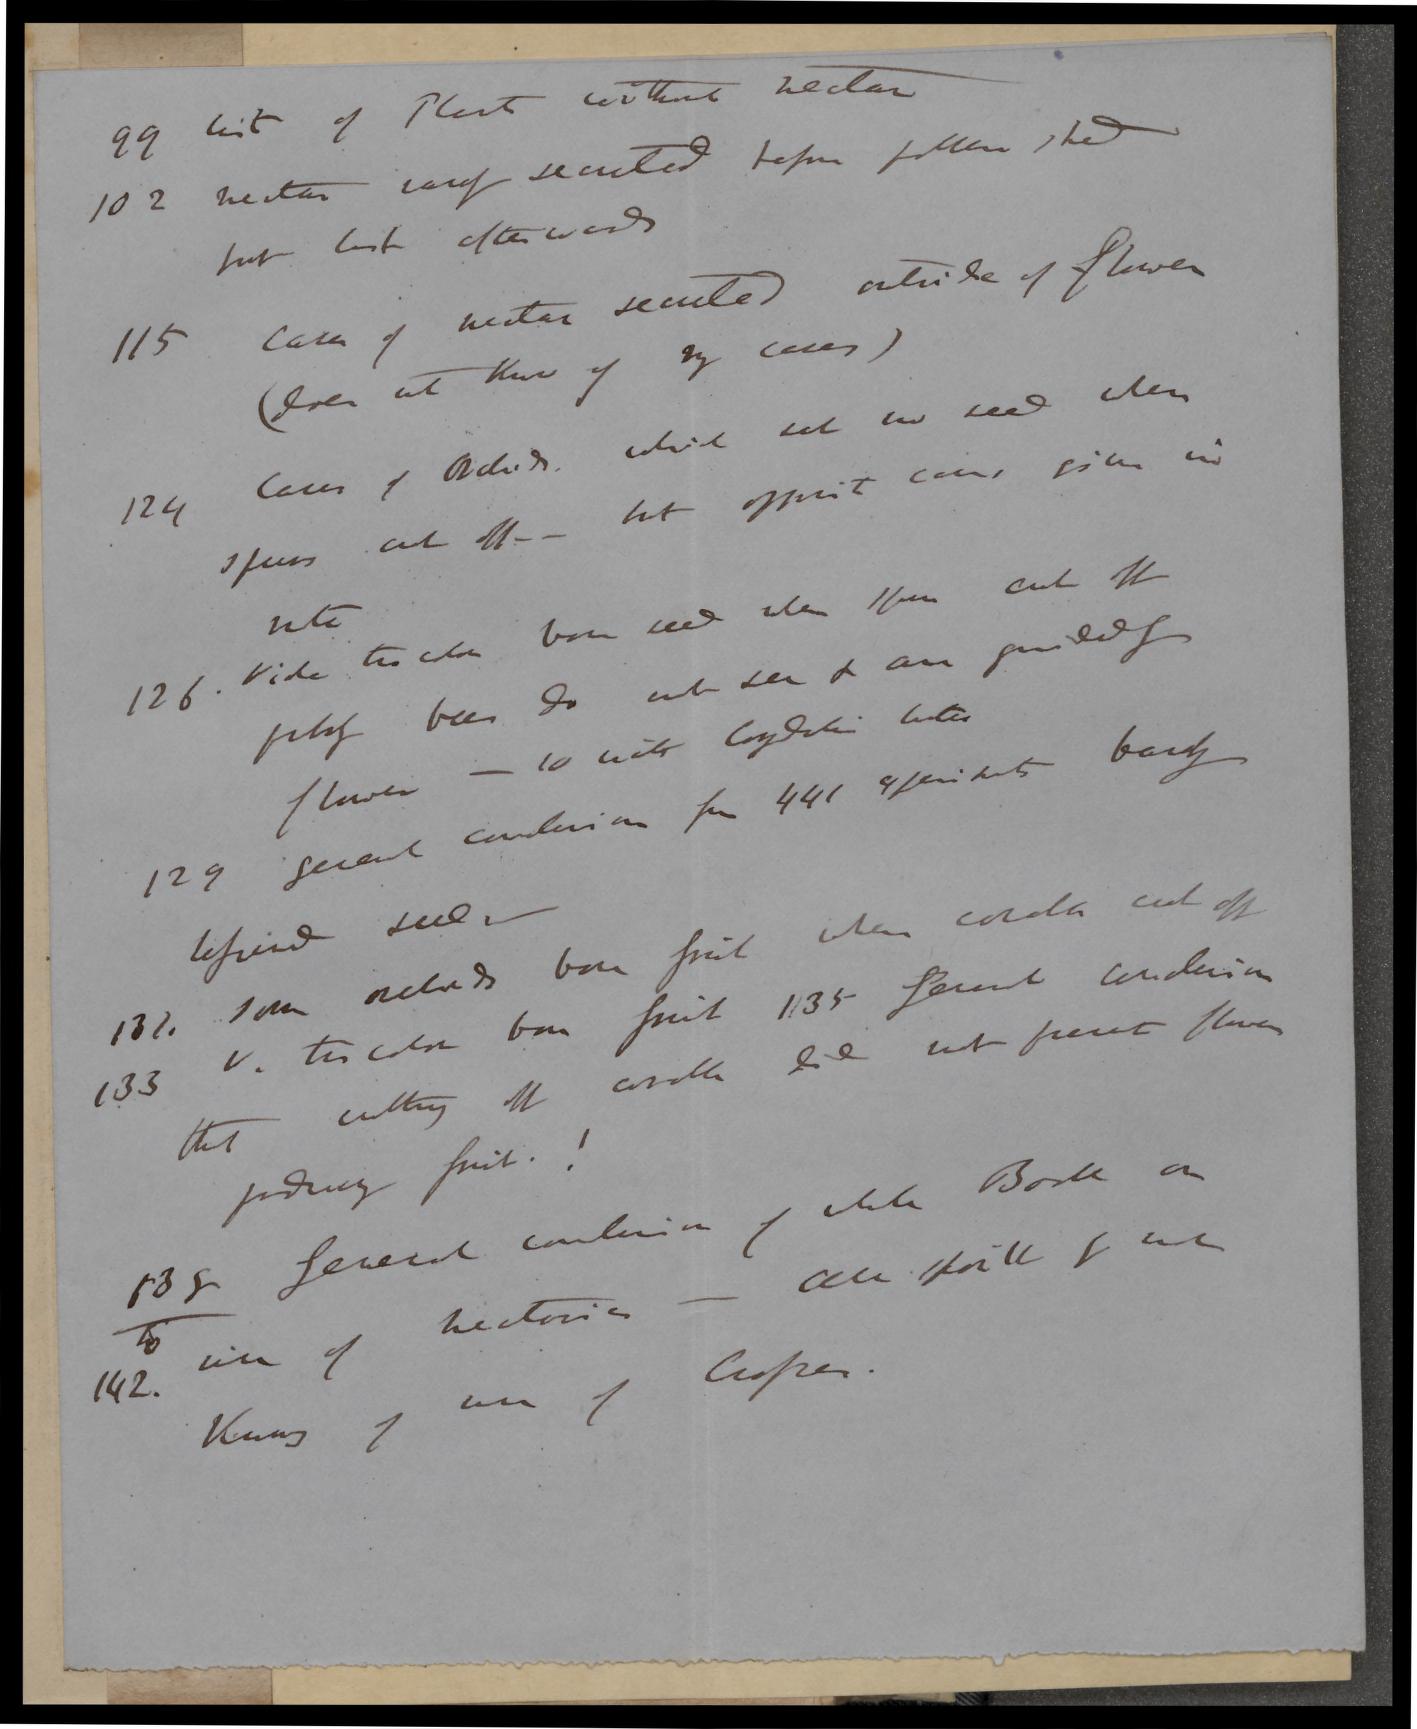 99 list of Plants without nectar
102 nectar rarely secreted before pollen shed
but last afterwards
115 Cases of nectar secreted outside of flower
(does not know of my cases)
124 Cases of Orchids. which set no seed when
spurs cut off -- but opposite cases given in
note
126. Viola tricolor bore seed when spur cut off
probably bees do not see & are guided by
flower — so with Corydalis lutea
129 general conclusion from 441 experiments barely
seed —
132. some orchids bore fruit when corolla cut off
133 V. tricolor bore fruit 135 General conclusion
that cutting off corolla did not prevent flower
producing fruit. !
138 General conclusion of whole Book on
to
142. use of nectaries — of not
Knows of use of